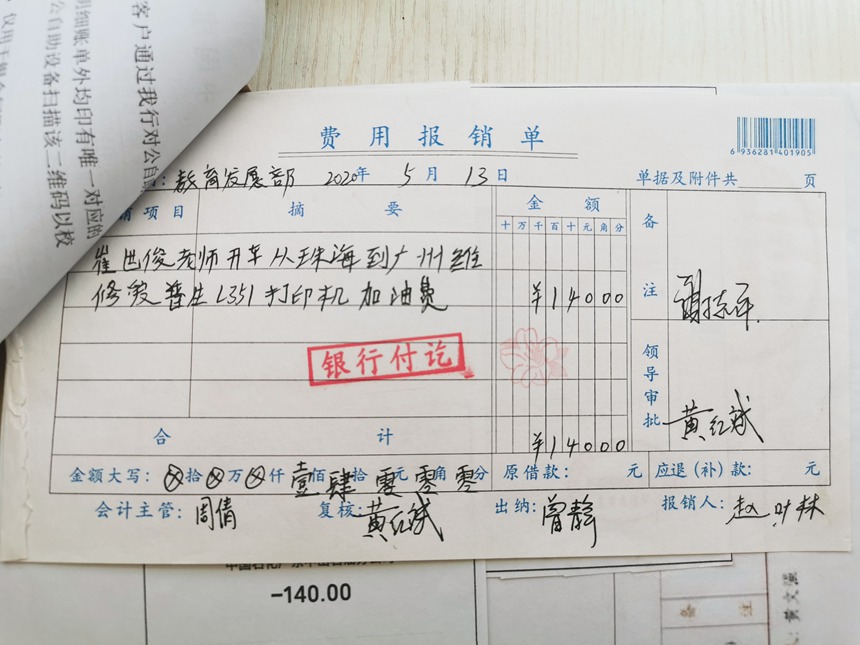 客户通过我行对公自
明细账单外均印有唯一对应的
公自助设备扫描该二维码以校
费用报销单
6 936281 401905
教育发展部 2020年 5月 13日 单据及附件共 页
项目 摘要 金额 备注
十万千百十元角分
崔世俊老师开车从珠海到广州维
修爱普生L351打印机加油费 ¥14000
银行付讫
领导审批 黄红斌
合计 ¥14000
金额大写: ⊗拾⊗万⊗仟壹佰肆拾零元零角零分 原借款: 元 应退(补)款: 元
会计主管: 周倩 复核: 黄红斌 出纳: 曾静 报销人: 赵叶林
-140.00
备注
黄文强